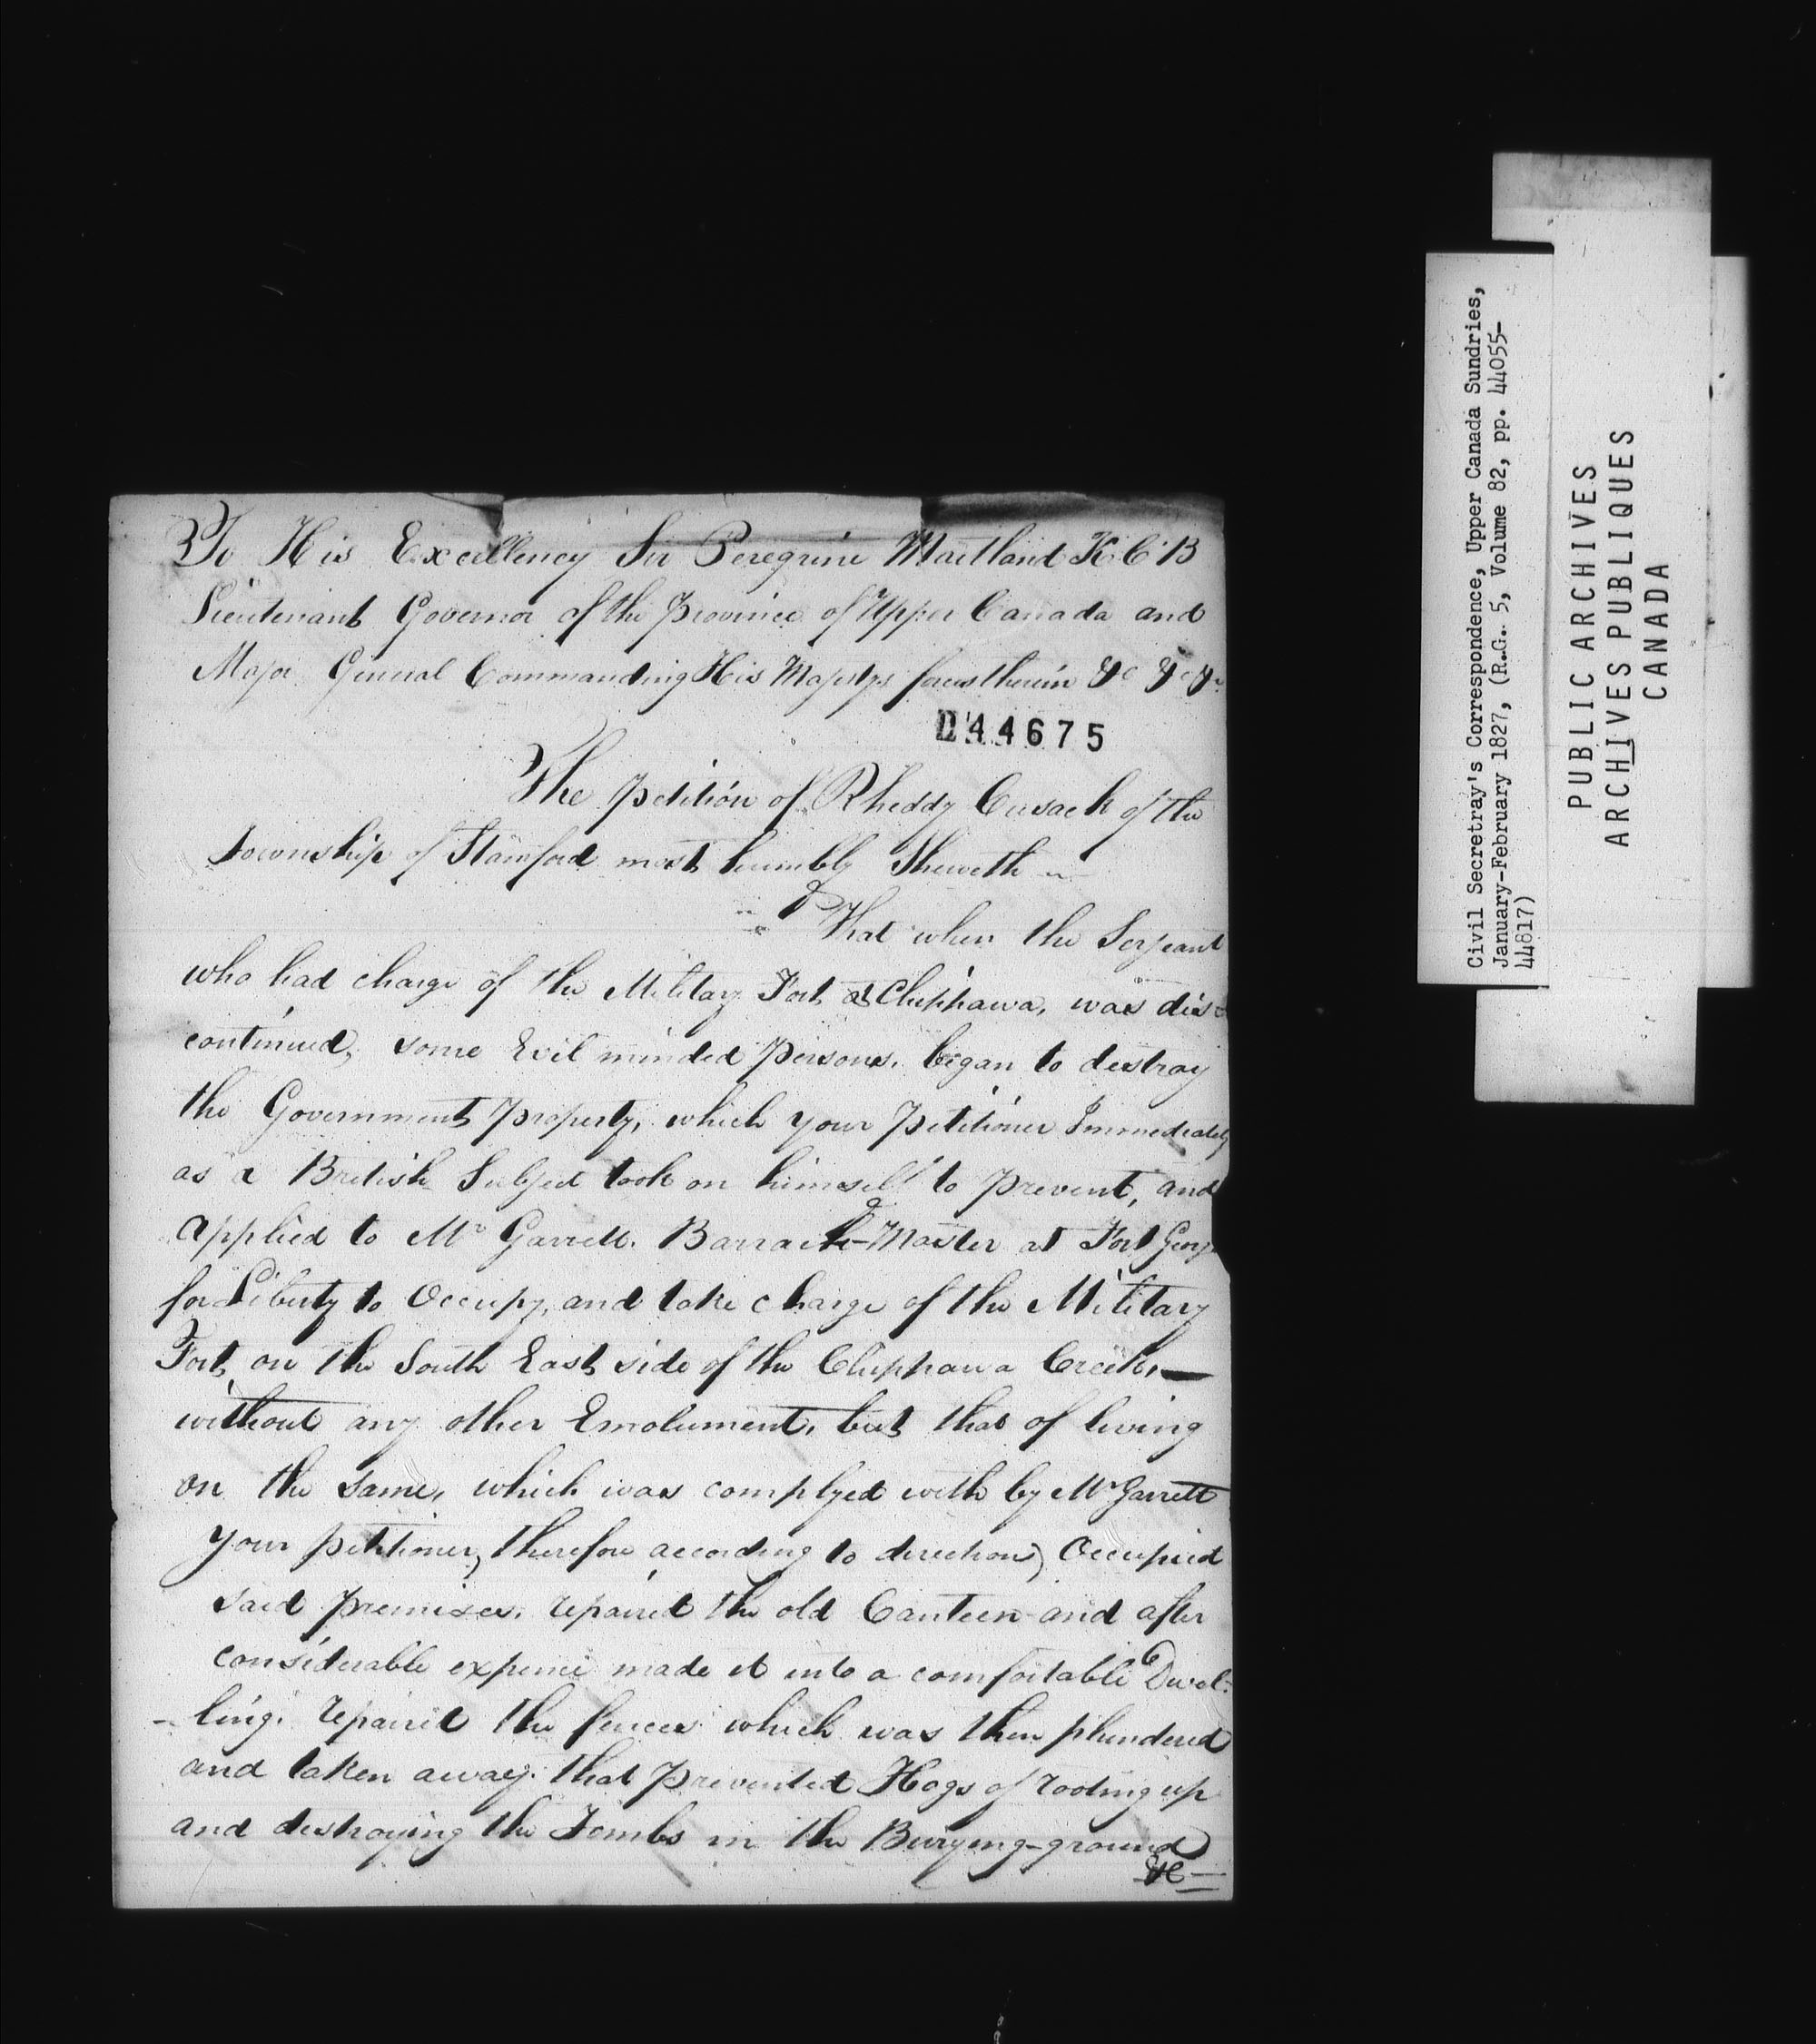 To His Excellency Sir Peregrine Maitland K.C.B
Lieutenant Governor of the Province of Upper Canada and
Major General Commanding His Majestys forces therein &c &c &c
D'44675
The Petition of Rheddy Cusack of the
Township of Stamford most humbly Sheweth
That when the Serjeant
who had charge of the Military Fort at Chippawa, was dis-
continued, some Evil minded Persons, began to destroy
the Government Property, which your Petitioner Immediately
as a British Subject took on himself to Prevent, and
applied to Mr Garrett. Barrack-Master at Fort George
for Liberty to Occupy, and take charge of the Military
Fort, on the South East side of the Chippawa Creek,—
without any other Emolument, but that of living
on the same, which was complyed with by Mr Garrett
your petitioner, therefore according to direction, Occupied
said Premises, repaired the old Canteen and after
considerable expence made it into a comfortable Dwel-
-ling. repaired the fences which was then plundered
and taken away. that Prevented Hogs of rooting up
and destroying the Tombs in the Burying-ground
&c—
Civil Secretray's Correspondence, Upper Canada Sundries,
January-February 1827, (R.G. 5, Volume 82, pp. 44055-
44817)
PUBLIC ARCHIVES
ARCHIVES PUBLIQUES
CANADA